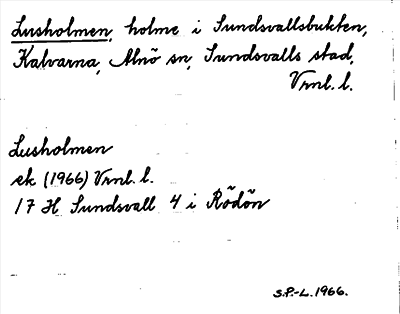 Lusholmen, holme i Sundsvallsbukten,
Kalvarna, Alnö sn, Sundsvalls stad,
Vrml. l.
Lusholmen
ek (1966) Vrml. l.
17 H Sundsvall 4 i Rödön
S.P.-L. 1966.